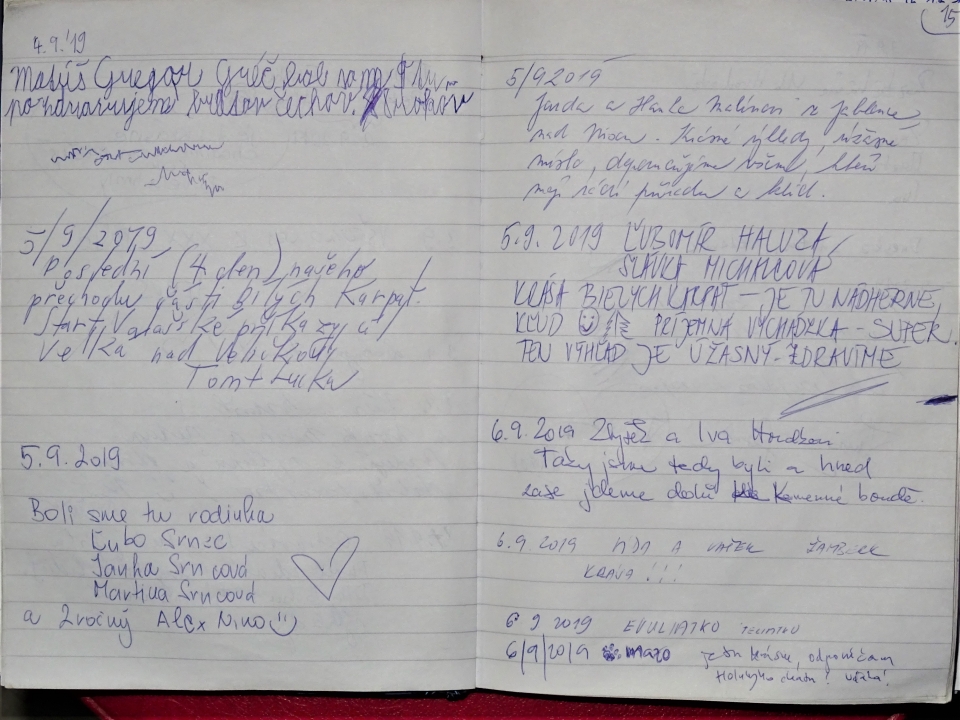 4.9.'19
Matúš Gregor
5/9/2019
Poslední (4. den) našeho
přechodu části Bílých Karpat.
Start Valašské příkazy cíl
Velká nad Veličkou
Tom + Lucka
5.9.2019
Boli sme tu rodinka
Ľubo Srnec
Janka Srncová
Martina Srncová
a 2ročný Alex Nino
15
5/9 2019
Jarda a Hanka Malinovi z Jablonce
nad Nisou. Krásné výhledy, úžasné
místo, doporučujeme všem, kteří
mají rádi přírodu a klid.
5.9.2019 ĽUBOMÍR HALUZA,
SLÁVKA MICHALCOVÁ
KRÁSA BIELYCH KARPAT – JE TU NÁDHERNE,
KĽUD PRÍJEMNÁ VYCHÁDZKA - SUPER.
TEN VÝHĽAD JE ÚŽASNÝ - ZDRAVÍME
6.9.2019 a Iva
jsme tady byli a hned
zase jdeme dolů Kamenné boudě.
6.9 2019 A VAŠEK ŽAMBERK
KRÁSA !!!
6 9 2019 EVULIATKO
6/9/2019 je tu krásne, odporúčam
Holubyho chatu!